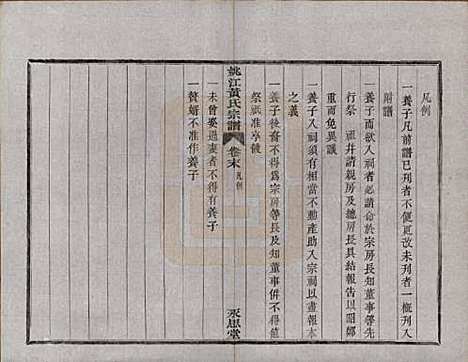 凡例
一養子凡前譜已刋者不便更改未刋者一槪刋入
附譜
一養子而欲入祠者必請命於宗房長知董事等先
行祭 祖井請親房及總房長具結報告以昭鄭
重而免異議
一養子入祠須有相當不動產助入宗祠以盡報本
之義
一養子後裔不得爲宗房等長及知董事併不得與
祭祇准享餕
姚江黃氏宗譜 卷末 凡例
永思堂
一未曾娶過妻者不得有養子
一贅婿不准作養子